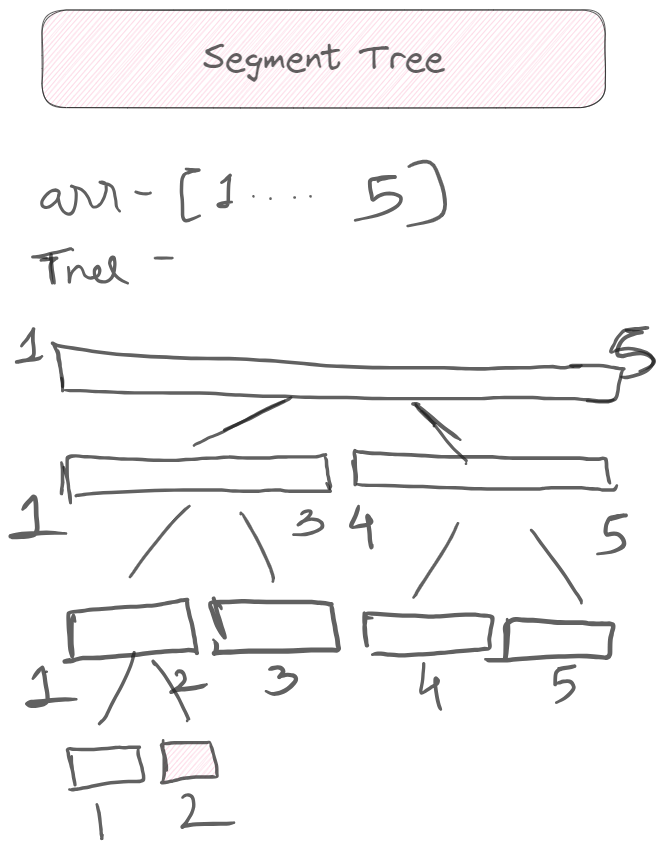 Segment Tree
arr - [1 .... 5]
Tree -
1 5
1 3 4 5
1 2 3 4 5
1 2